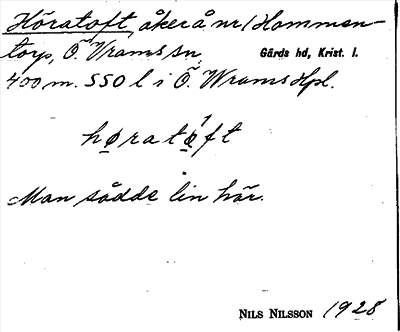 Höratoft, åker å nr 1 Hommen-
torp, Ö. Vrams sn, Gärds hd, Krist. l.
400 m. SSO l i Ö. Wrams Hpl.
høratøft
Man sådde lin här.
NILS NILSSON 1928